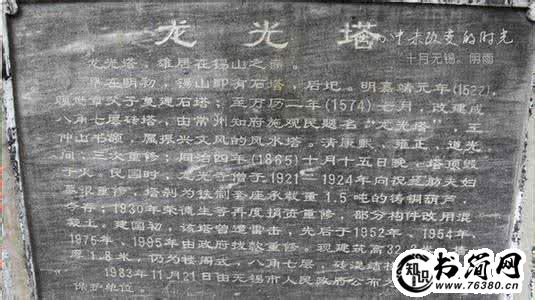 龙光塔
中未改变的时光
十月无锡。阴雨
龙光塔，雄居在锡山之巅。
早在明初，锡山即有石塔，后圮。明嘉靖元年(1522)，
顾懋章父子复建石塔；至万历二年(1574)七月，改建成
八角七层砖塔，由常州知府施观民题名“龙光塔”，王
仲山书额，属振兴文风的风水塔。清康熙、雍正、道光
间，三次重修；同治四年(1865)十月十五日晚，塔顶毁
于火。民国时，龙光寺僧于1921—1924年向沉 夫妇
募银重修，塔刹为铁制套座承载重1.5吨的铸铜葫芦，
今存；1930年荣德生等再度捐资重修，部分构件改用混
凝土。建国初，该塔曾遭雷击，先后于1952年、1954年、
1976年、1995年由政府拨款重修。现建筑高32
厚1.8米，仍为楼阁式，八角七层，砖混结构
1983年11月21日由无锡市人民政府公布为
保护单位。
知识
书简网
www.76380.cn